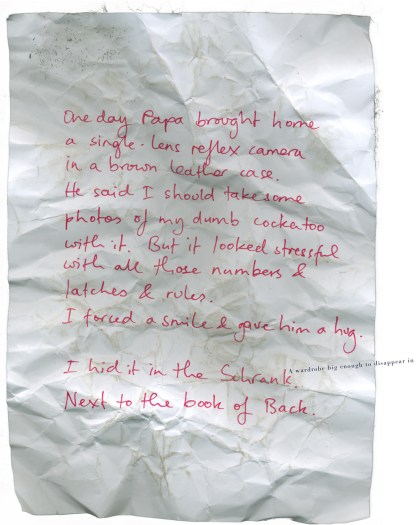 One day Papa brought home
a single-lens reflex camera
in a brown leather case.
He said I should take some
photos of my dumb cockatoo
with it. But it looked stressful
with all those numbers &
latches & rules.
I forced a smile & gave him a hug.
I hid it in the Schrank.
A wardrobe big enough to disappear in
Next to the book of Bach.